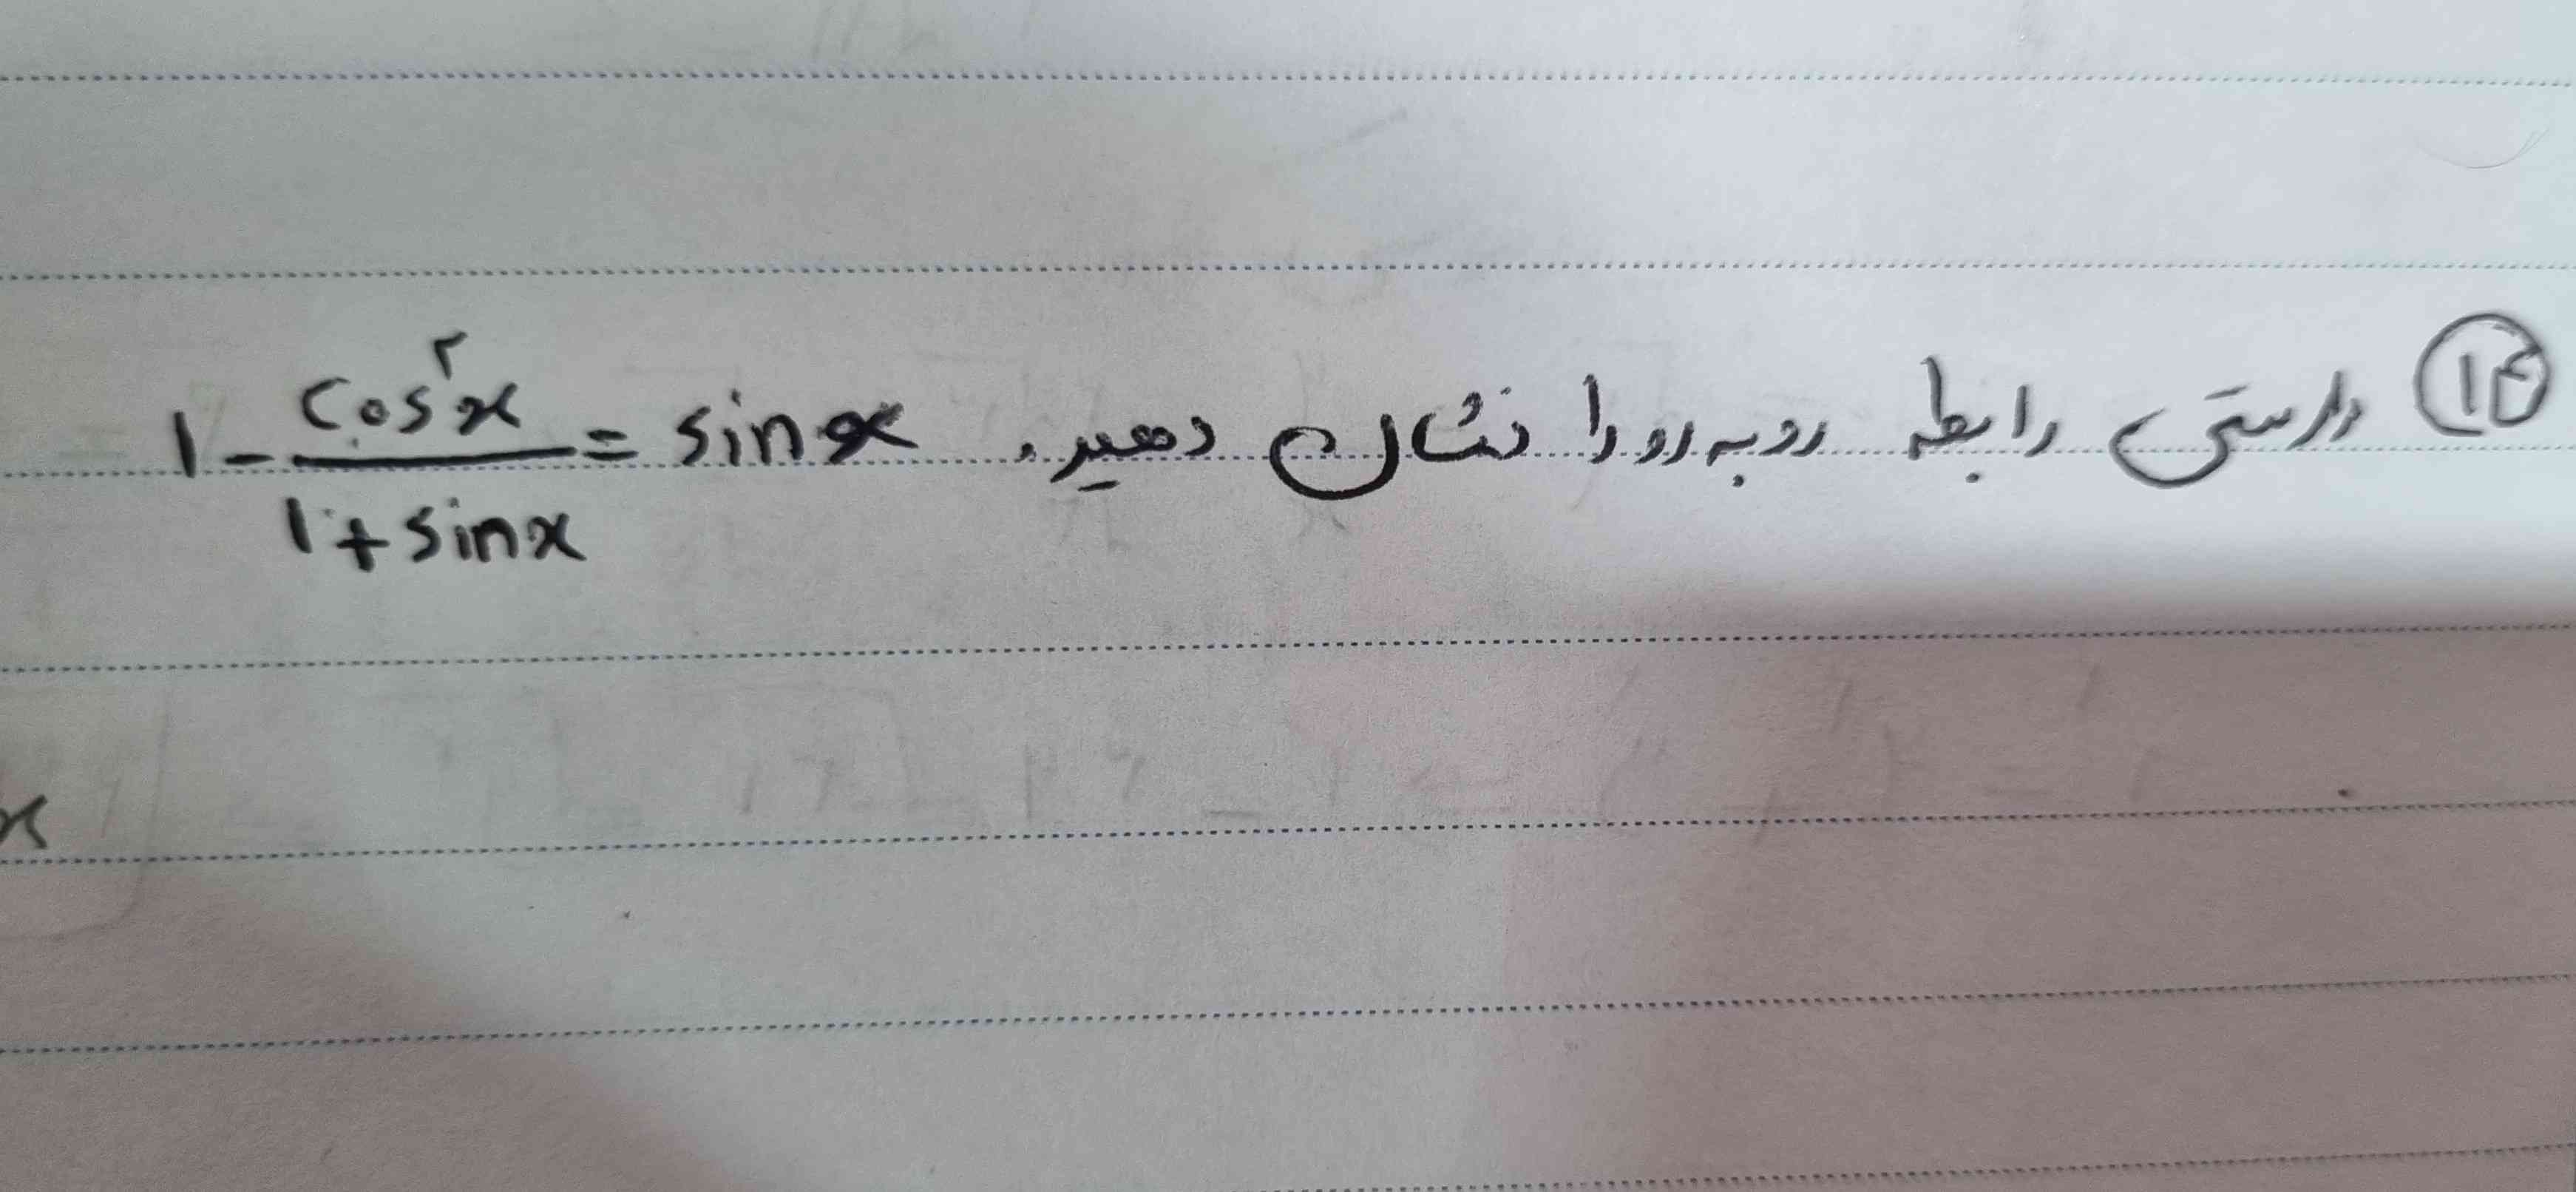 ۱۴ درستی رابطه روبه رو را نشان دهید. 1 - cos²x / 1 + sinx = sinx
x